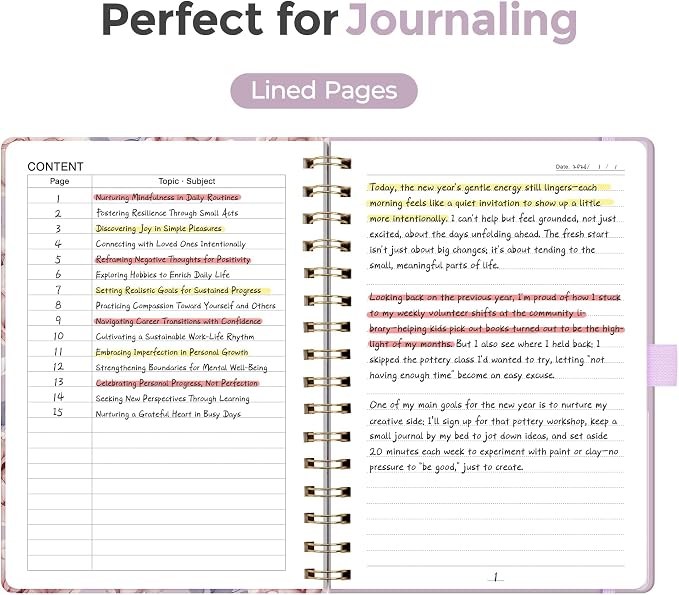 Perfect for Journaling
Lined Pages
CONTENT
Page Topic · Subject
1 Nurturing Mindfulness in Daily Routines
2 Fostering Resilience Through Small Acts
3 Discovering Joy in Simple Pleasures
4 Connecting with Loved Ones Intentionally
5 Reframing Negative Thoughts for Positivity
6 Exploring Hobbies to Enrich Daily Life
7 Setting Realistic Goals for Sustained Progress
8 Practicing Compassion Toward Yourself and Others
9 Navigating Career Transitions with Confidence
10 Cultivating a Sustainable Work-Life Rhythm
11 Embracing Imperfection in Personal Growth
12 Strengthening Boundaries for Mental Well-Being
13 Celebrating Personal Progress, Not Perfection
14 Seeking New Perspectives Through Learning
15 Nurturing a Grateful Heart in Busy Days
Date: 2026/ 1 / 1
Today, the new year's gentle energy still lingers—each
morning feels like a quiet invitation to show up a little
more intentionally. I can't help but feel grounded, not just
excited, about the days unfolding ahead. The fresh start
isn't just about big changes; it's about tending to the
small, meaningful parts of life.
Looking back on the previous year, I'm proud of how I stuck
to my weekly volunteer shifts at the community li-
brary-helping kids pick out books turned out to be the high-
light of my months. But I also see where I held back; I
skipped the pottery class I'd wanted to try, letting "not
having enough time" become an easy excuse.
One of my main goals for the new year is to nurture my
creative side; I'll sign up for that pottery workshop, keep a
small journal by my bed to jot down ideas, and set aside
20 minutes each week to experiment with paint or clay—no
pressure to "be good," just to create.
1